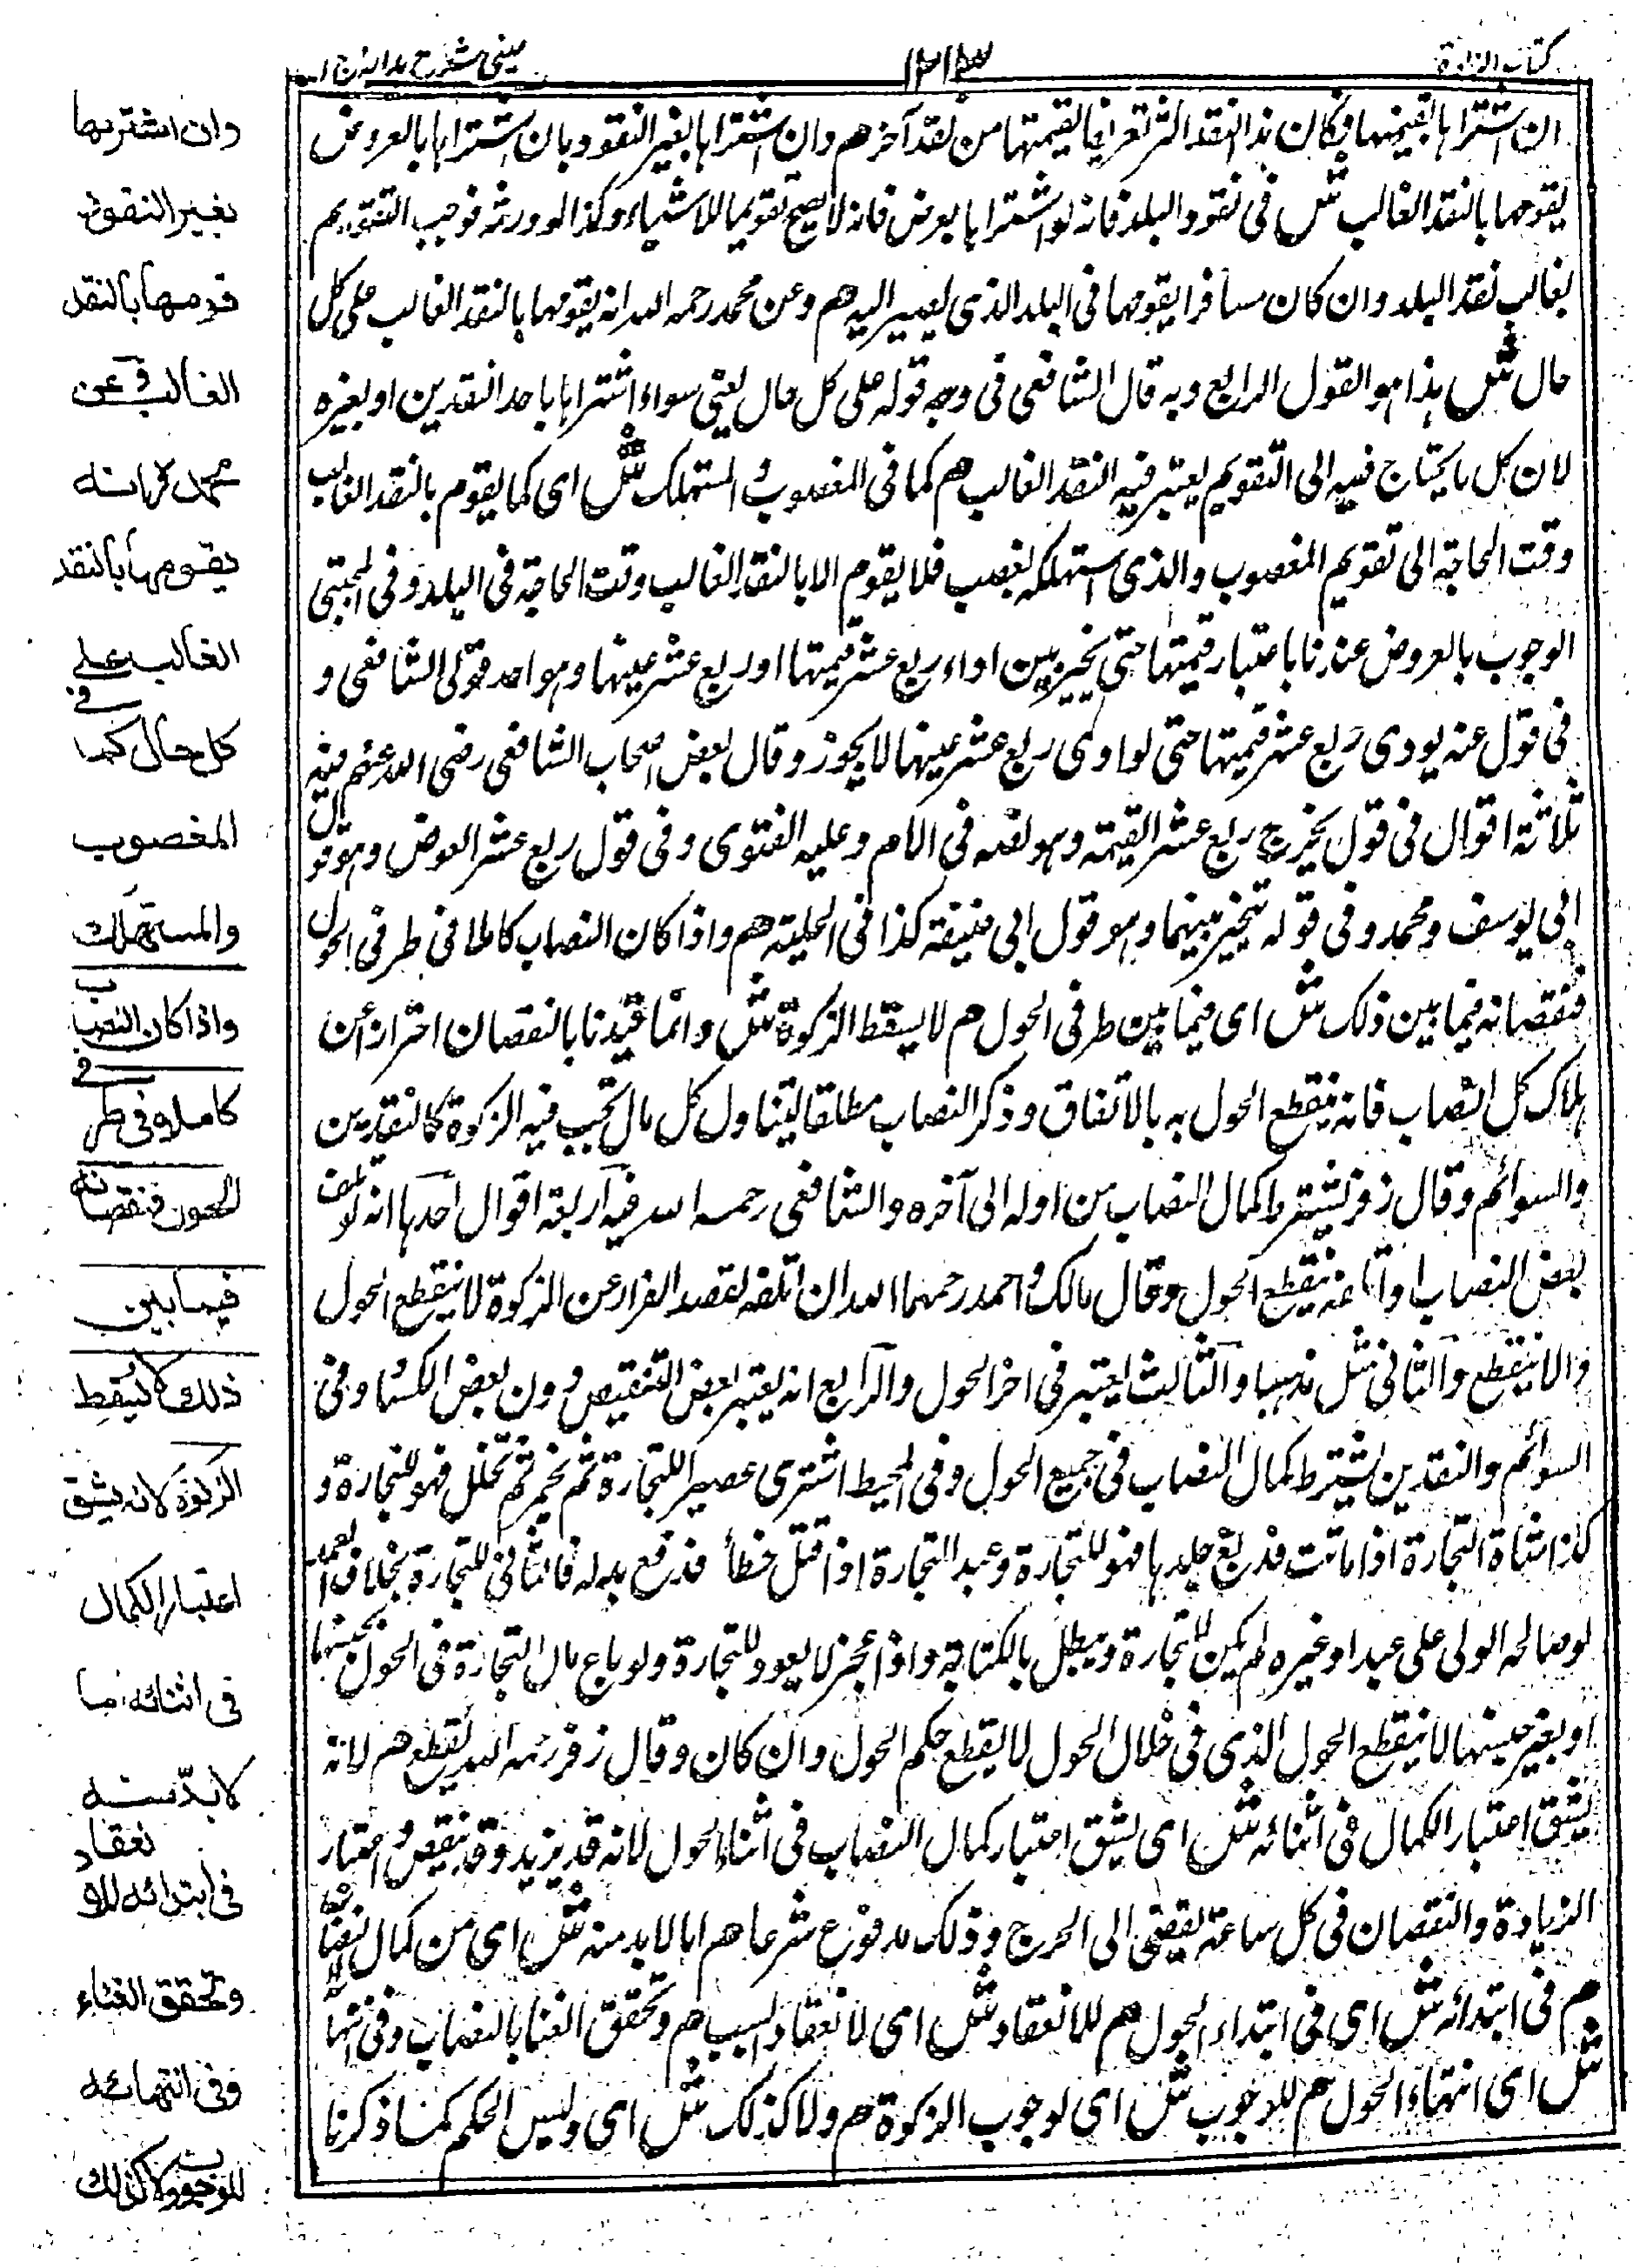 كتاب الزكوة
١٢١٣
عيني شرح هداية ج ا
ان اشتراها بقيمتها وكان هذا النقد اكثر تعريفا لقيمتها من نقد آخر هم وان اشتراها بغير النقود بان اشتراها بالعروض
يقومها بالنقد الغالب ش في نقود البلد فانه لو اشتراها بعرض فانه لا يصح تقويما للاشياء وكذا لو ورثه فوجب التقويم
بغالب نقد البلد وان كان مسافرا يقومها في البلد الذي يصير اليه هم وعن محمد رحمه الله انه يقومها بالنقد الغالب على كل
حال ش هذا هو القول الرابع وبه قال الشافعي في وجه قوله على كل حال يعني سواء اشتراها باحد النقدين او بغيره
لان كل ما يحتاج فيه الى التقويم يعتبر فيه النقد الغالب هم كما في المغصوب والمستهلك ش اى كما يقوم بالنقد الغالب
وقت الحاجة الى تقويم المغصوب والذي استهلكه بغصب فلا يقوم الا بالنقد الغالب وقت الحاجة في البلد وفي المجتبى
الوجوب بالعروض عندنا باعتبار قيمتها حتى يخير بين اداء ربع عشر قيمتها او ربع عشر عينها وهو احد قولى الشافعي و
في قول عنه يودى ربع عشر قيمتها حتى لو ادى ربع عشر عينها لا يجوز وقال بعض اصحاب الشافعي رضى الله عنهم فيه
ثلاثة اقوال في قول يخرج ربع عشر القيمة وهو نصه في الام وعليه الفتوى وفي قول ربع عشر العرض وهو قول
ابي يوسف ومحمد وفي قوله يتخير بينهما وهو قول ابي حنيفة كذا في الحلية هم واذا كان النصاب كاملا في طرفى الحول
فنقصانه فيما بين ذلك ش اى فيما بين طرفى الحول هم لا يسقط الزكوة ش وانما قيدنا بالنقصان احترازا عن
هلاك كل النصاب فانه ينقطع الحول به بالاتفاق وذكر النصاب مطلقا ليتناول كل مال تجب فيه الزكوة كالنقدين
والسوائم وقال زفر يشترط كمال النصاب من اوله الى آخره والشافعي رحمه الله فيه اربعة اقوال احدها انه لو تلف
بعض النصاب او اتلفه ينقطع الحول وقال مالك واحمد رحمهما الله ان اتلفه لقصد الفرار عن الزكوة لا ينقطع الحول
والا ينقطع والثاني مثل مذهبنا والثالث يعتبر في اخر الحول والرابع انه يعتبر بعض التنقيص دون بعض وفي
السوائم والنقدين يشترط كمال النصاب في جميع الحول وفي المحيط اشترى عصيرا للتجارة ثم تخمر ثم تخلل فهو للتجارة و
كذا شاة التجارة اذا ماتت فدبغ جلدها فهو للتجارة وعبد التجارة اذا قتل خطأ فدفع بدله فالثاني للتجارة بخلاف العمد
لو صالحه الولى على عبد او غيره لم يكن للتجارة ويبطل بالكتابة واذا عجز لا يعود للتجارة ولو باع مال التجارة في الحول بجنسها
او بغير جنسها لا ينقطع الحول الذي في خلال الحول لا يقطع حكم الحول وان كان وقال زفر رحمه الله يقطع هم لانه
يشق اعتبار الكمال في اثنائه ش اى يشق اعتبار كمال النصاب في اثناء الحول لانه قد يزيد وقد ينقص واعتبار
الزيادة والنقصان في كل ساعة يفضى الى الحرج وذلك مدفوع شرعا هم اما لا بد منه ش اى من كمال النصاب
هم في ابتدائه ش اى في ابتداء الحول هم للانعقاد ش اى لانعقاد السبب هم وتحقق الغنا بالنصاب وفي انتهائه
ش اى انتهاء الحول هم للوجوب ش اى لوجوب الزكوة هم ولا كذلك ش اى وليس الحكم كما ذكرنا
وان اشتريها
بغير النقود
قومها بالنقد
الغالب وعن
محمد رح انه
يقومها بالنقد
الغالب على
كل حال كما في
المغصوب
والمستهلك
واذا كان النصاب
كاملا في طرفي
الحول فنقصانه
فيما بين
ذلك لا يسقط
الزكوة لانه يشق
اعتبار الكمال
في اثنائه اما
لا بد منه
في ابتدائه للانعقاد
وتحقق الغناء
وفي انتهائه
للوجوب ولا كذلك